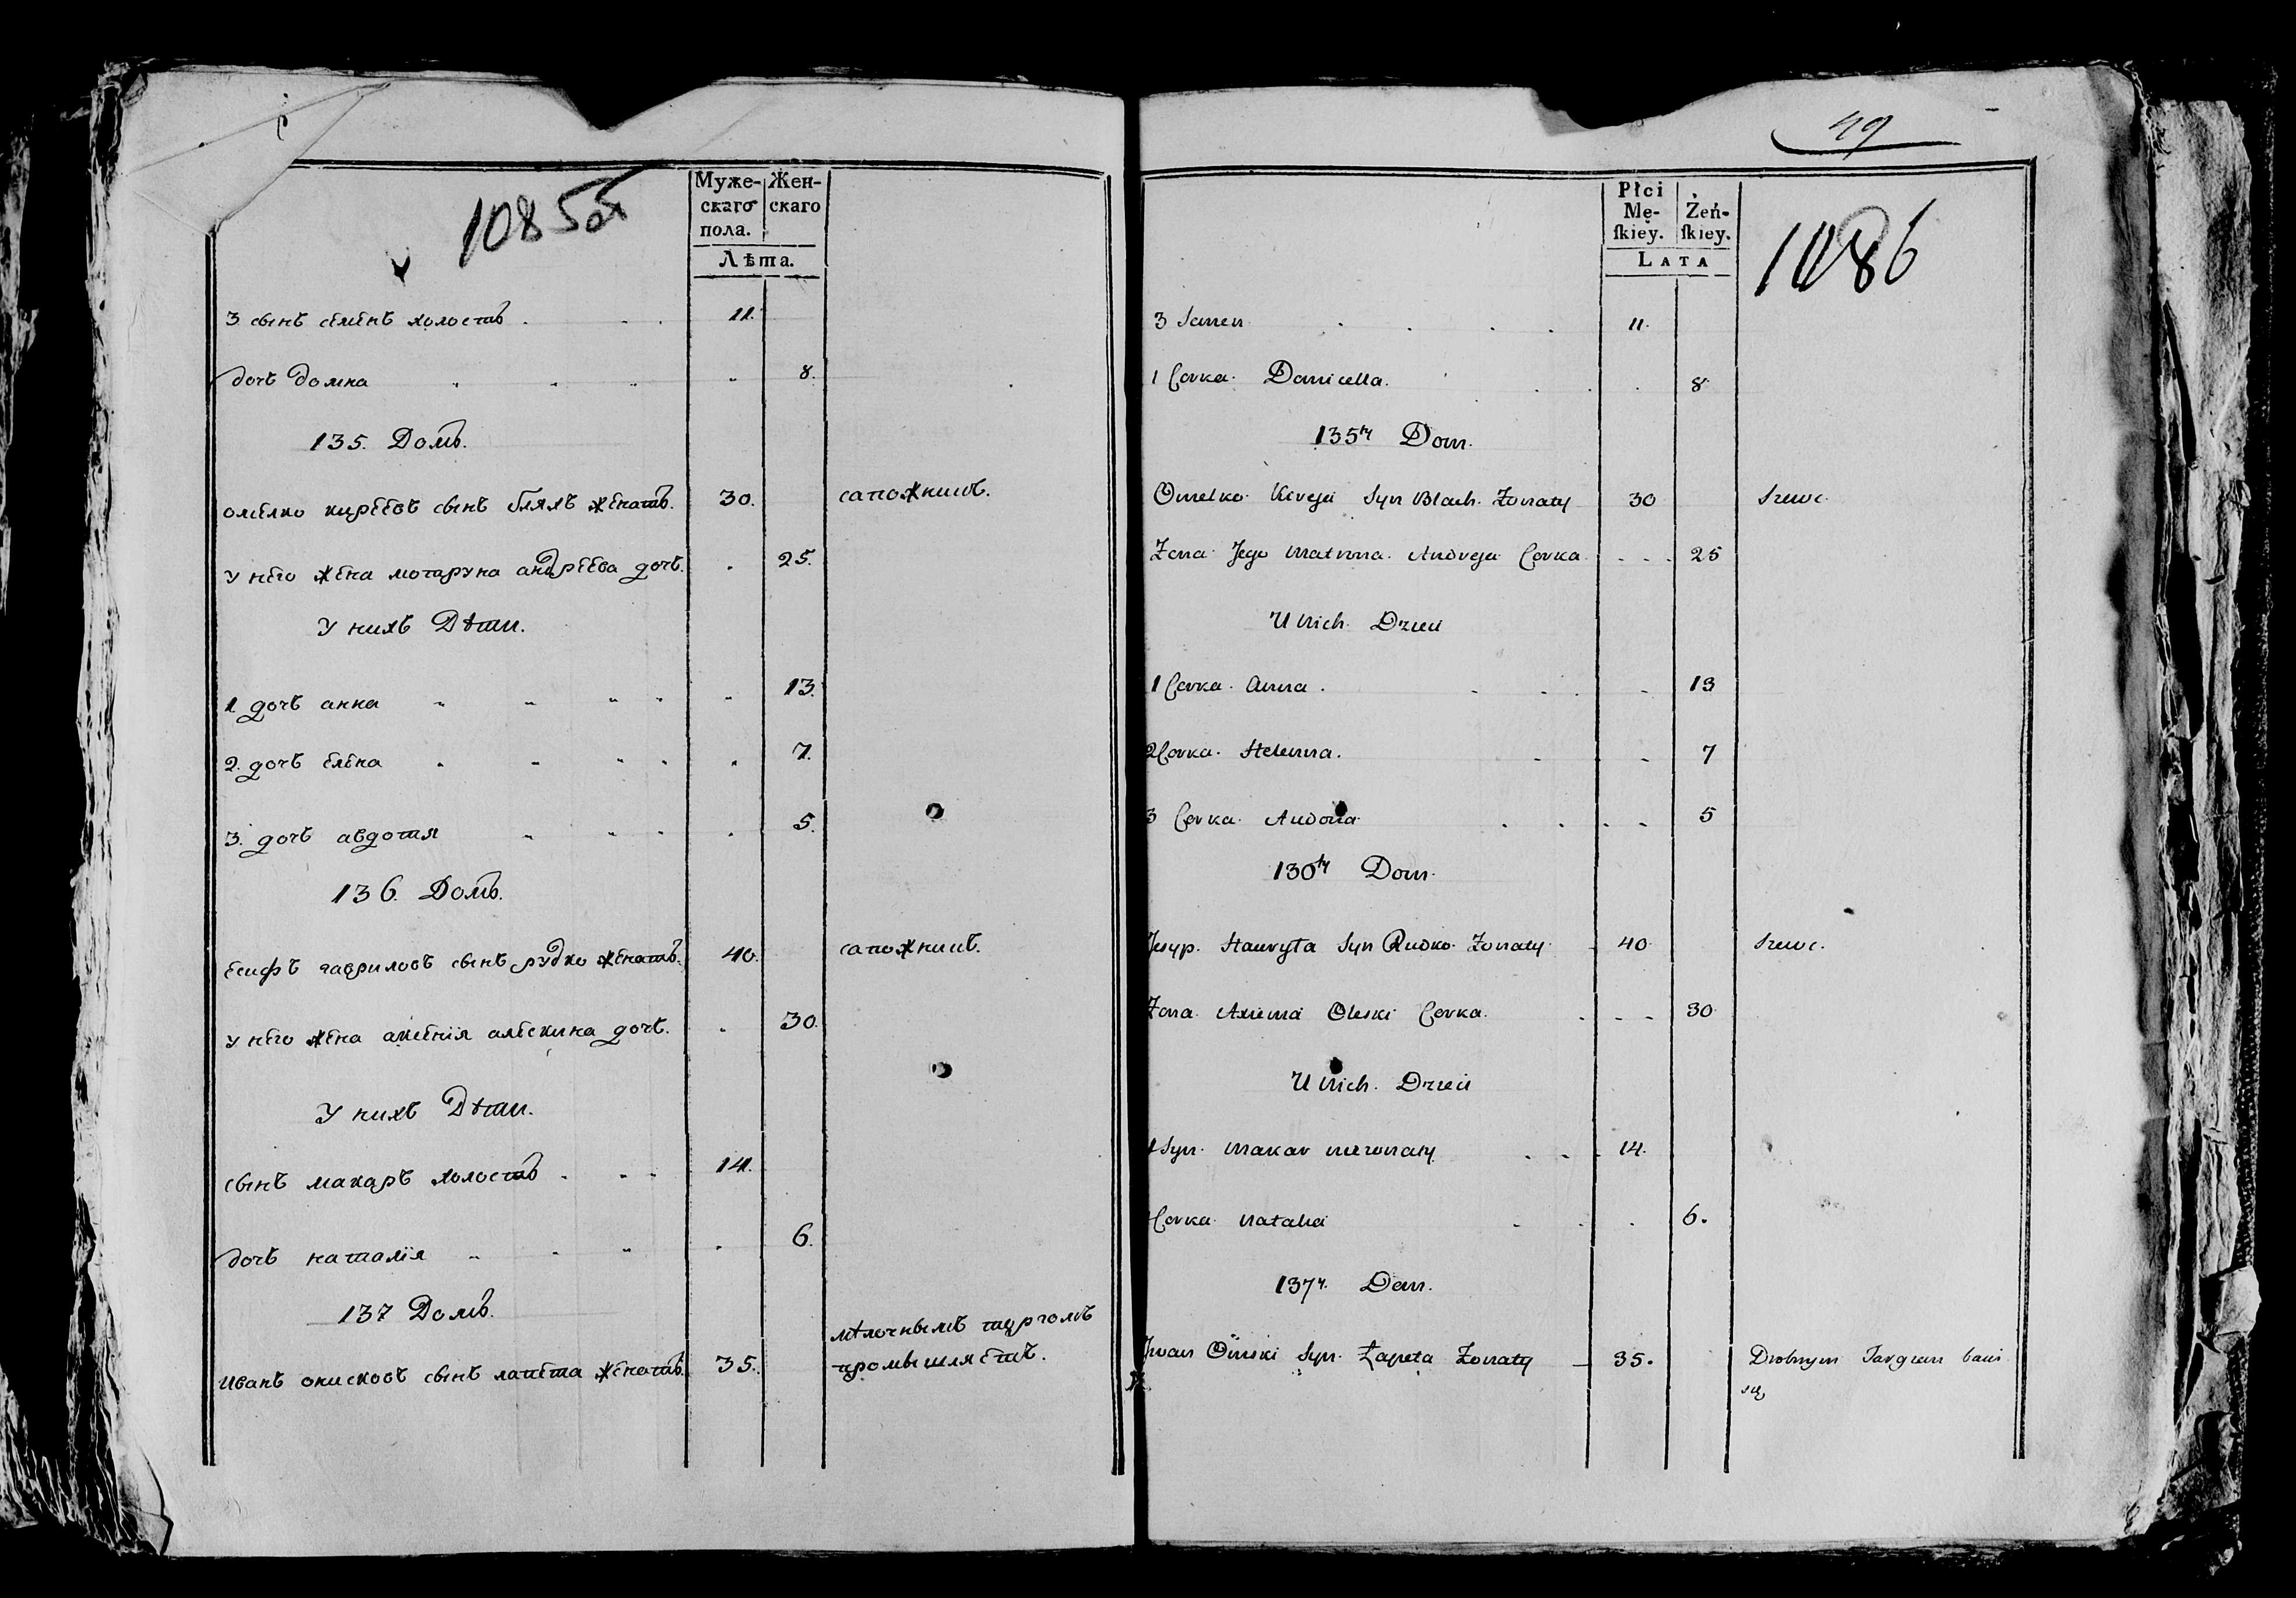 1085об
Муже-
скаго
пола.
Жен-
скаго
Лѣта.
3 сынъ семенъ холостъ . . . 11.
дочъ домна 8.
135. Домъ.
омелко киреевъ сынъ бляхъ женатъ. 30. сапожникъ.
у него жена мотаруна андреева дочъ. 25.
У нихъ Дѣти.
1 дочъ анна 13.
2. дочъ елена 7.
3. дочъ авдотия 5.
136. Домъ.
есифъ гавриловъ сынъ рудко женатъ. 40. сапожникъ.
у него жена аксенїя алескина дочъ. 30.
У нихъ Дѣти.
сынъ макаръ холостъ . . . 14.
дочъ наталїя 6.
137 Домъ.
мѣлочнымъ торгомъ
иванъ онисковъ сынъ лапета женатъ. 35. промышляетъ.
49
Płci
Mę-
ſkiey.
Żeń-
ſkiey.
LATA
1086
3 Semen . . . . 11.
1 Corka. Domicella. 8.
135ty Dom.
Omelko Kireja Syn Blach. Zonaty 30 Szewc.
Zona Jego Matrona. Andreja Corka 25
U Nich. Dzieci
1 Corka. Anna. 13
2 Corka. Helenna. 7
3 Corka. Audotia. 5
130ty Dom.
Jesyp. Hawryła Syn Rudko. Zonaty. 40 Szewc.
Zona Axienia Oleski Corka. 30
U Nich. Dzieci
1 Syn. Makar niezonaty 14.
1 Corka. Natalia 6.
137y. Dom.
Jwan Oniski Syn. Łapeta Zonaty 35. Drobnym Targiem bawi
się